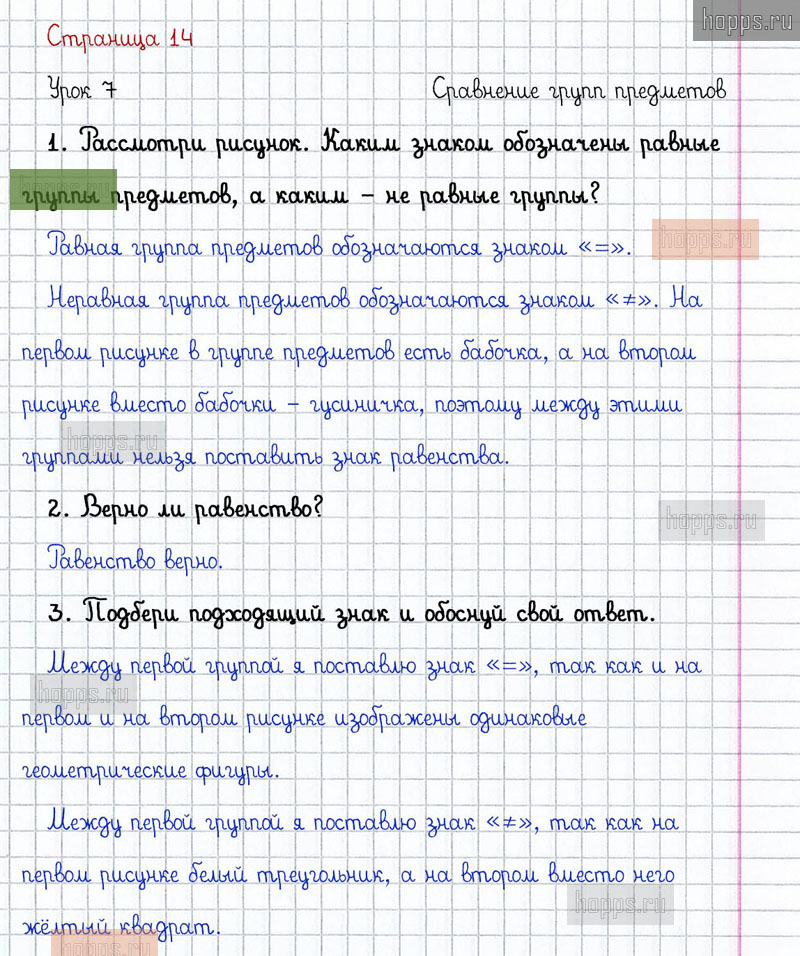 hopps.ru
Страница 14
Урок 7 Сравнение групп предметов
1. Рассмотри рисунок. Каким знаком обозначены равные
группы предметов, а каким – не равные группы?
Равная группа предметов обозначаются знаком «=».
hopps.ru
Неравная группа предметов обозначаются знаком «≠». На
первом рисунке в группе предметов есть бабочка, а на втором
рисунке вместо бабочки – гусиничка, поэтому между этими
hopps.ru
группами нельзя поставить знак равенства.
2. Верно ли равенство?
hopps.ru
Равенство верно.
3. Подбери подходящий знак и обоснуй свой ответ.
Между первой группой я поставлю знак «=», так как и на
hopps.ru
первом и на втором рисунке изображены одинаковые
геометрические фигуры.
Между первой группой я поставлю знак «≠», так как на
первом рисунке белый треугольник, а на втором вместо него
hopps.ru
жёлтый квадрат.
hopps.ru